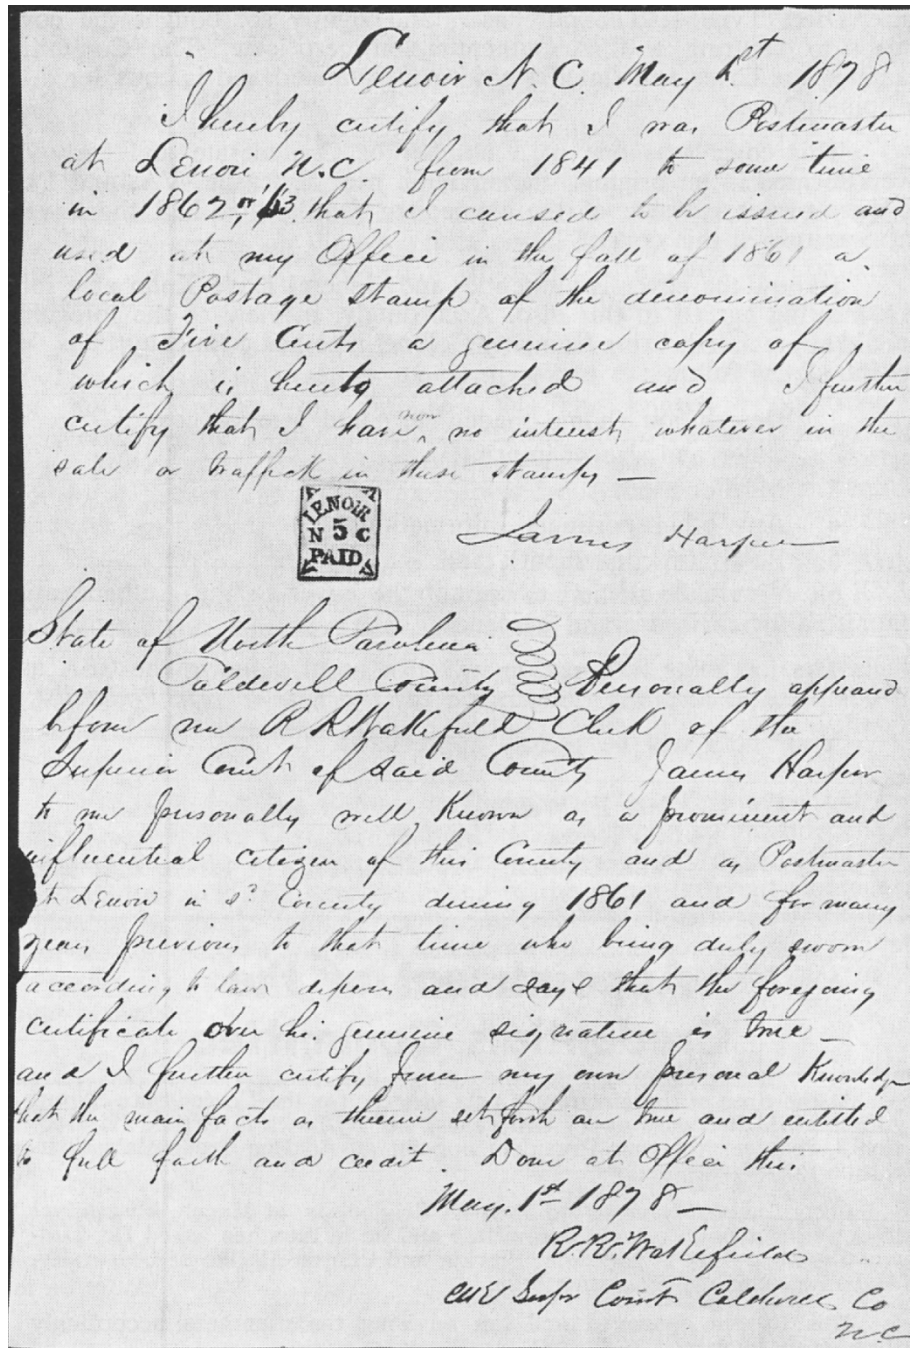 Lenoir N. C. May 1st 1878
I hereby certify that I was Postmaster
at Lenoir N.C. from 1841 to some time
in 1862, or '63 that I caused to be issued and
used at my Office in the fall of 1861 a
local Postage stamp of the denomination
of Five Cents a genuine copy of
which is hereto attached and I further
certify that I have now no interest whatever in the
sale or traffick in these stamps —
LENOIR
N 5 C
PAID
James Harper
State of North Carolina
Caldwell County Personally appeared
before me R R Wakefield Clerk of the
Superior Court of said County James Harper
to me personally well Known as a prominent and
influential citizen of this County and as Postmaster
at Lenoir in sd County during 1861 and for many
years previous to that time who being duly sworn
according to law deposes and says that the foregoing
certificate over his genuine signature is true —
and I further certify from my own personal Knowledge
that the main facts as therein set forth are true and entitled
to full faith and credit. Done at Office this
May. 1st 1878 —
R. R. Wakefield
Clk Supr Court Caldwell Co
N.C.